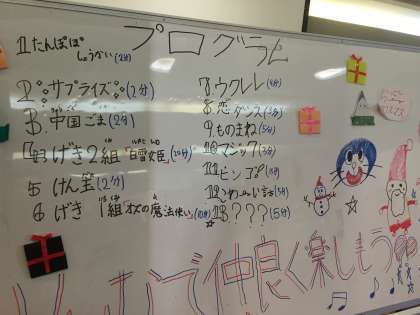 プログラム
1.たんぽぽ
しょうかい(2分)
2.サプライズ(2分)
3.中国ごま(2分)
4.げき2組「白雪姫」(10分)
5 けん玉(2分)
6 げき 1組 オズの魔法使い(10分)
7.ウクレレ(4分)
8.恋ダンス(3分)
9.ものまね(5分)
10.マジック(3分)
11.ビンゴ
12.(5分)
13.???(5分)
仲良く楽しもう